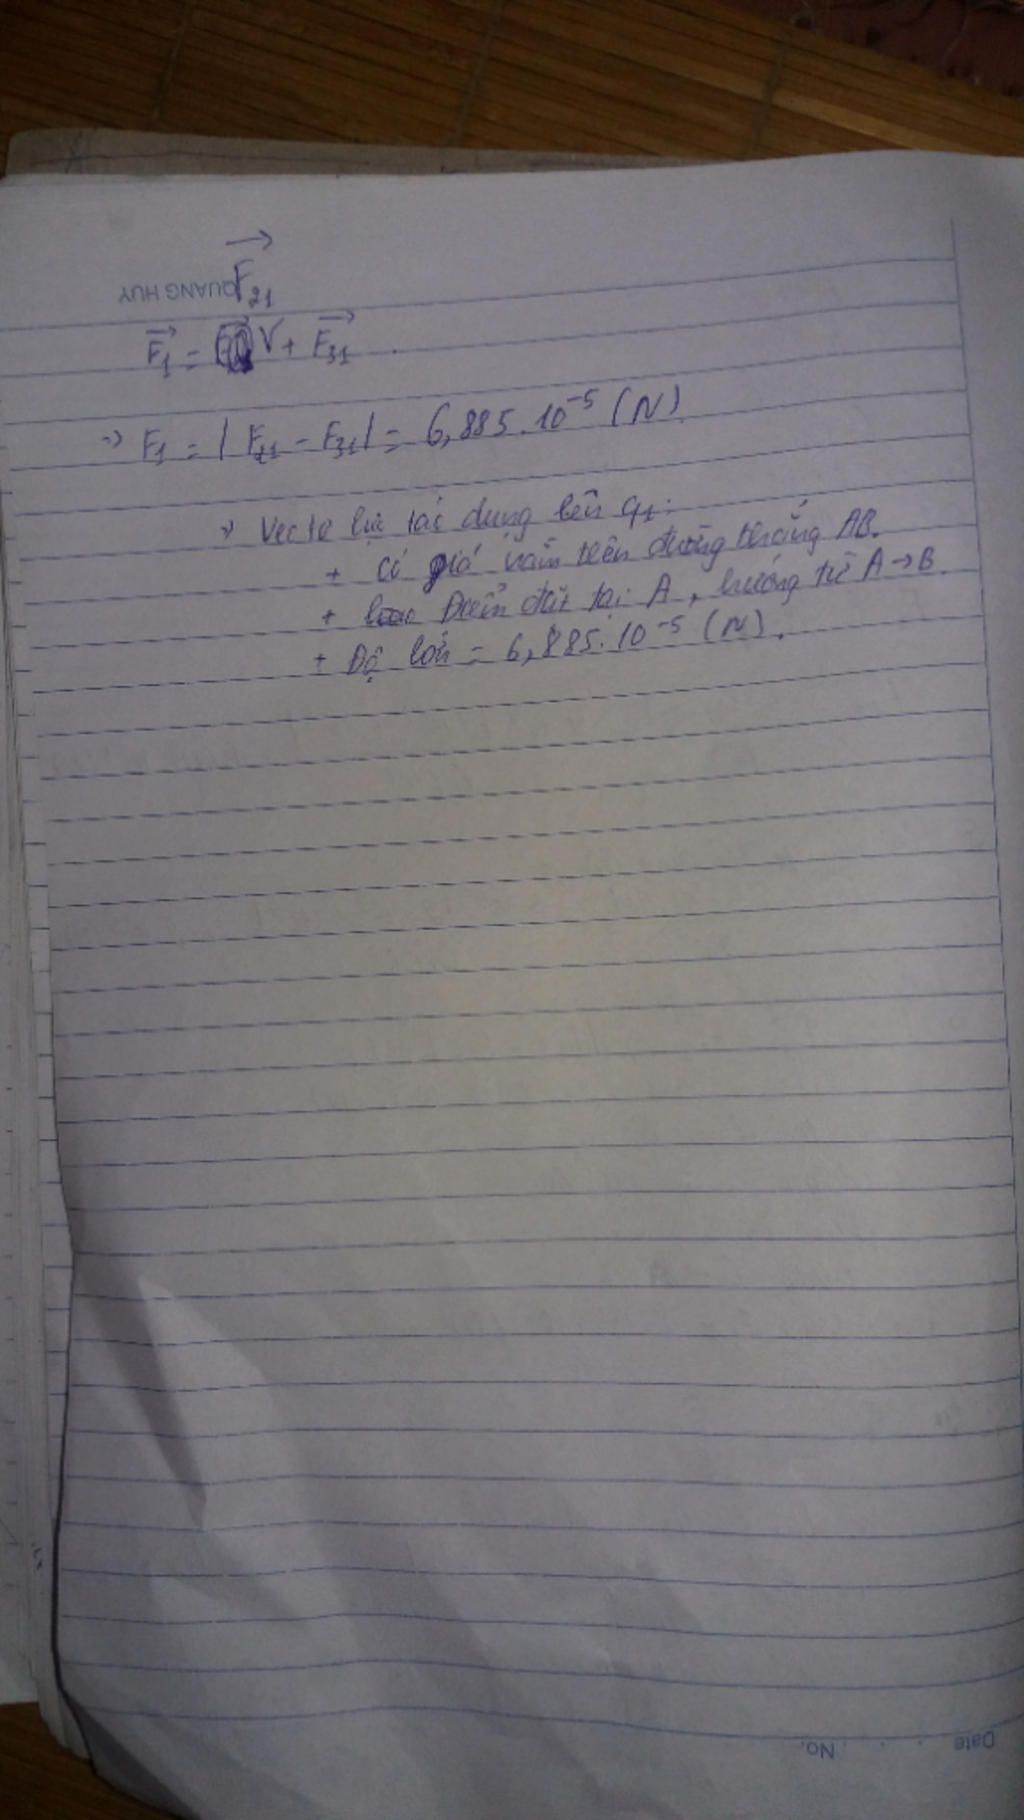 F₂₁
QUANG HUY
F₁ = V + F₃₁
=> F₁ = | F₂₁ - F₃₁ | = 6,885.10⁻⁵ (N)
=> Vectơ lực tác dụng lên q₁:
+ Có giá nằm trên đường thẳng AB.
+ Điểm đặt tại A, hướng từ A → B
+ Độ lớn = 6,885.10⁻⁵ (N).
Date . . . . No.